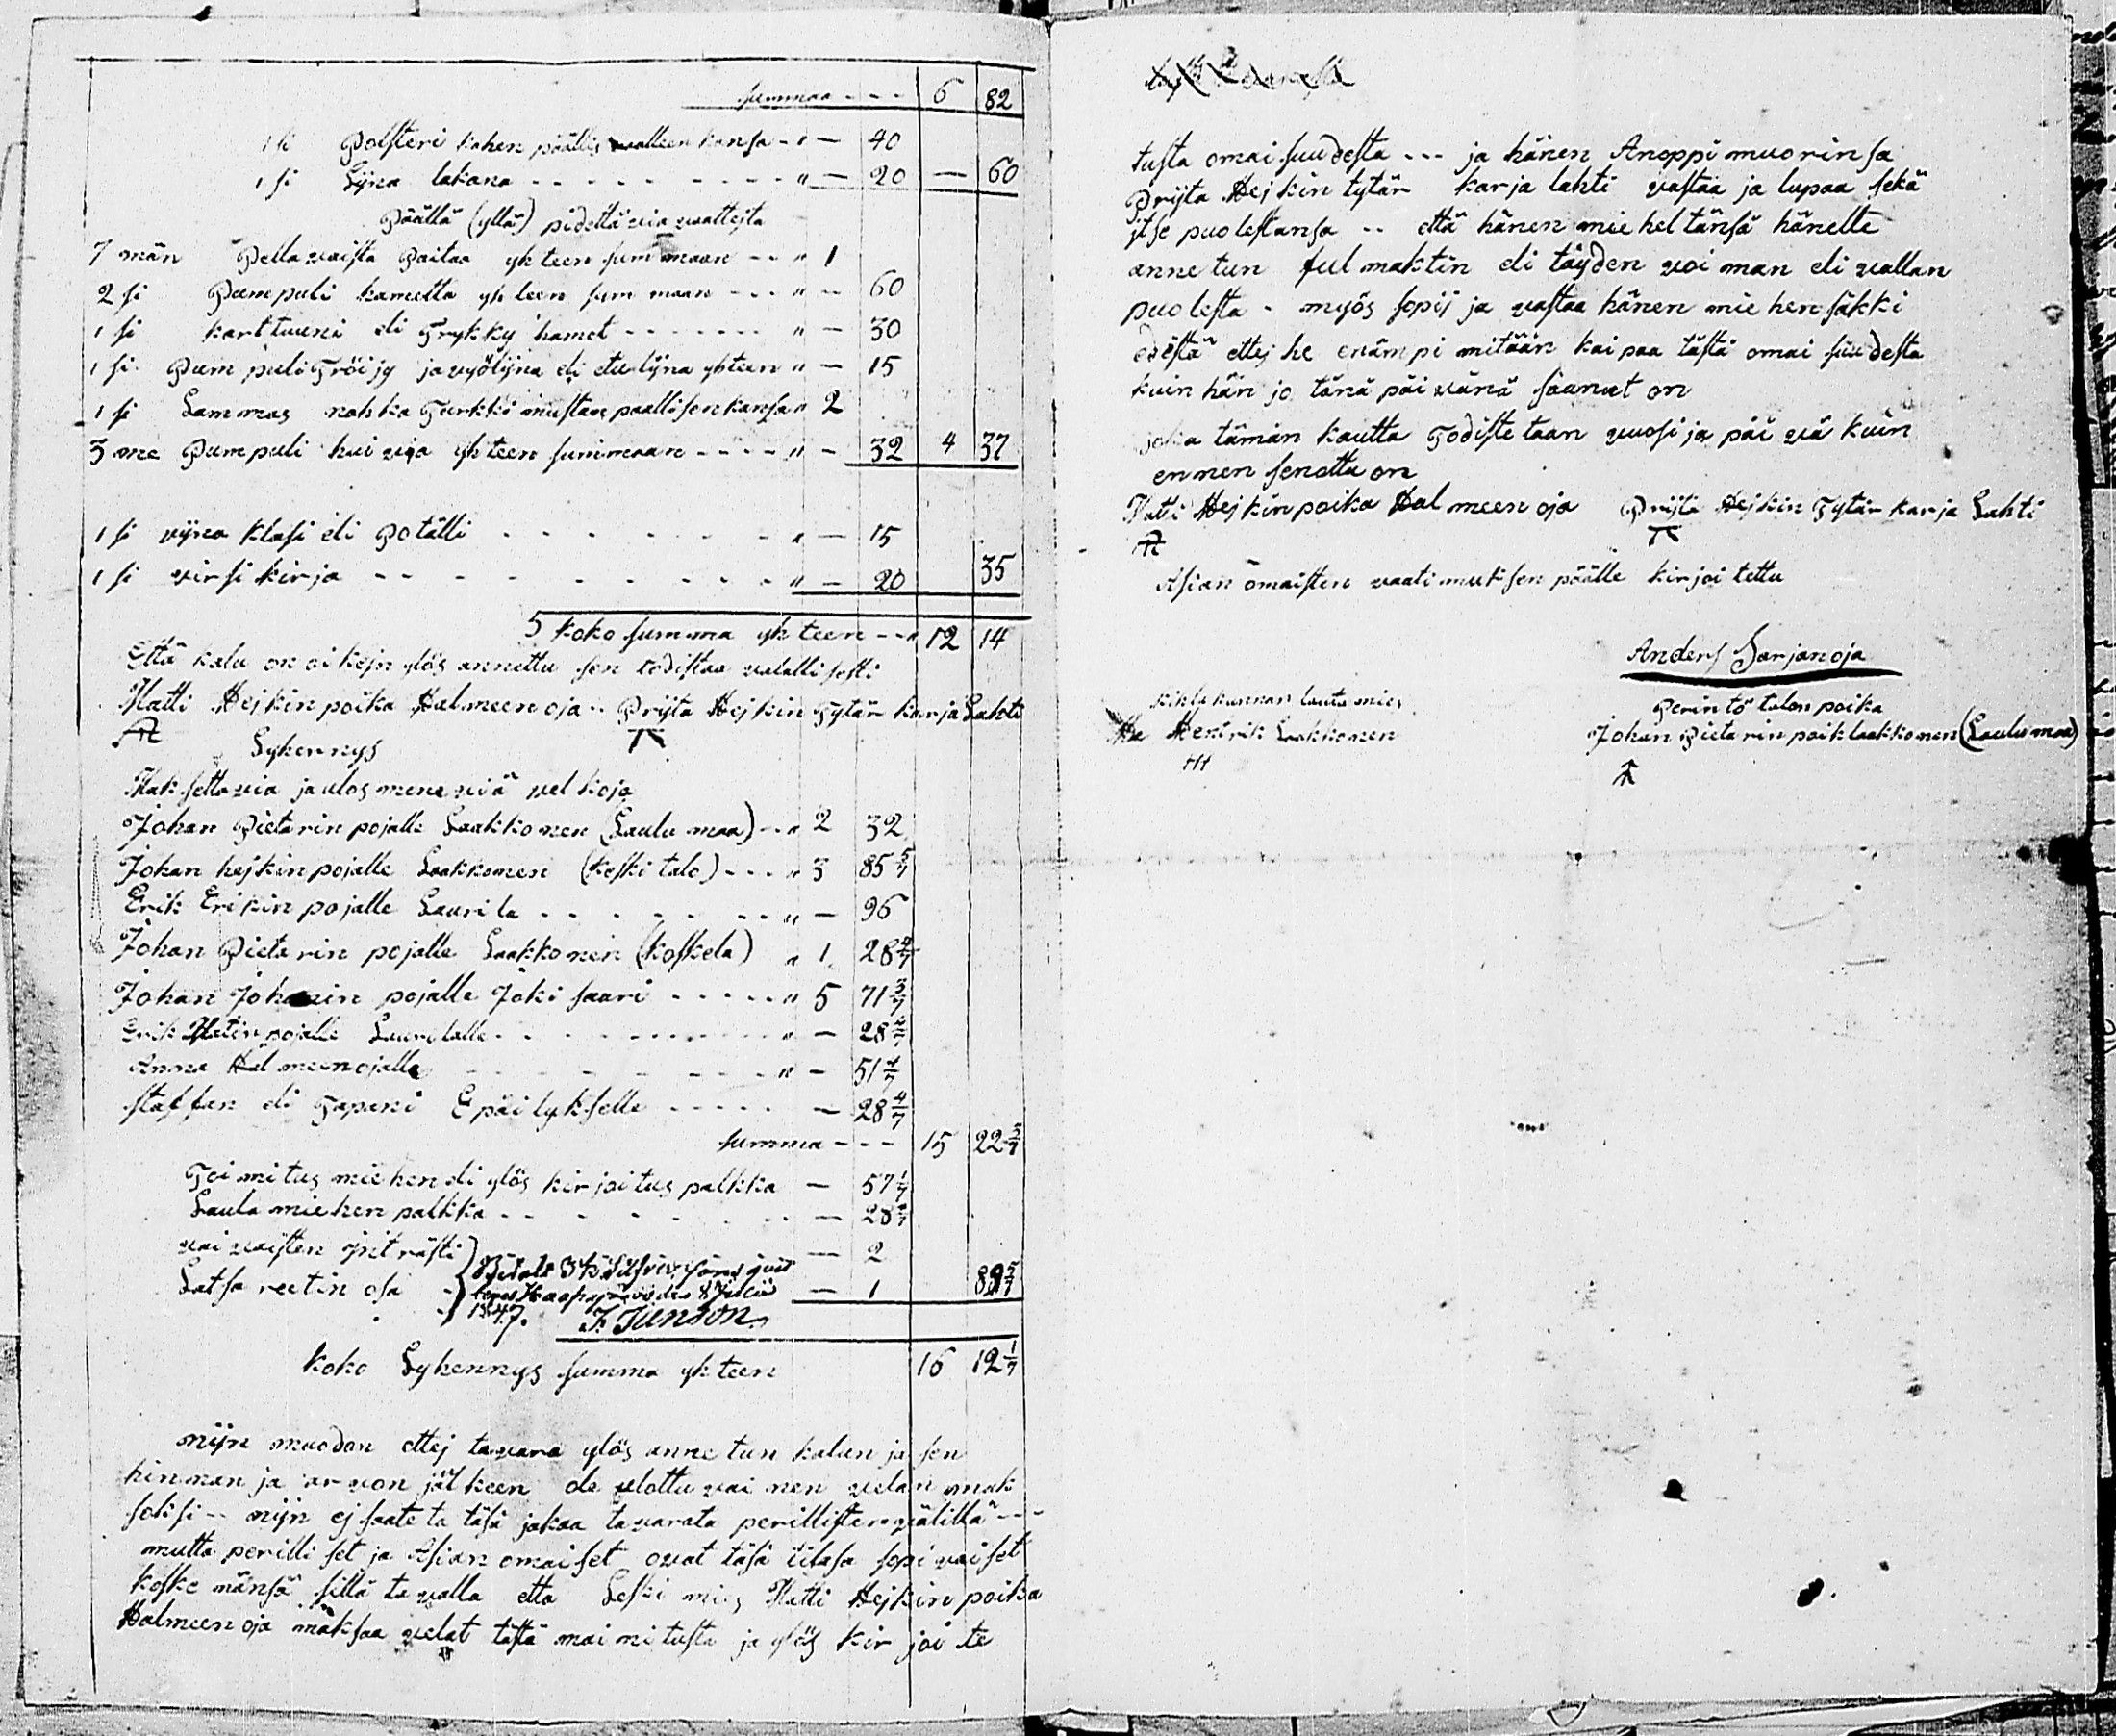 summaa - - - 6 82
1 si Polsteri kahen päällis waatteen kansa - " — 40
1 si Lijna lakana - - - - - - - - - " — 20 — 60
Päällä (yllä) pidettäwia waatteita
7 män Pellawaista Paitaa yhteen summaan - - " 1
2 si Pumpuli hametta yhteen summaan - - - " — 60
1 si karttuuni eli Trykky hamet - - - - - - " — 30
1 si Pumpuli Tröijy ja wyölijna eli etulijna yhteen " — 15
1 si Lammas nahka Turkki mustan paallisen kansa " 2
3 me Pumpuli huiwia yhteen summaan - - - - " — 32 4 37
1 si wijna klasi eli Potälli - - - - - - - " — 15
1 si wirsi kirja - - - - - - - - - - - " — 20 35
5 koko summa yhteen - - " 12 14
Että kalu on oikejn ylös annettu sen todistaa walallisesti
Matti Hejkin poika Halmeenoja - - Prijta Hejkin Tytär karja Lahti
Lyhennys
Maksettawia ja ulos menewiä welkoja
Johan Pietarin pojalle Laakkonen (Laulumaa) - - " 2 32
Johan hejkin pojalle Laakkonen (keski talo) - - - " 3 85 5/7
Erik Erikin pojalle Laurila - - - - - - - - " — 96
Johan Pietarin pojalle Laakkonen (koskela) " 1 28 4/7
Johan Johanin pojalle Jokisaari - - - - - " 5 71 3/7
Erik Matin pojalle Laurilalle - - - - - - - - " — 28 4/7
Anna Halmeenojalle - - - - - - - - " — 51 4/7
staffan eli Tapani Epäilykselle - - - - - — 28 4/7
summa - - - 15 22 5/7
Toimitus miehen eli ylös kirjoitus palkka — 57 1/7
Lauta miehen palkka - - - - - - - — 28 4/7
waiwaisten osa — 2
Latsareetin osa — 1 89 5/7
1847.
koko Lyhennys summa yhteen 16 12 1/7
nijn muodon ettej tawara ylös annetun kalun ja sen
hinnan ja arwon jälkeen ole ulottuwainen welan mak
soksi - - nijn ej saateta täsä jakaa tawarata perillisten wälillä - - -
mutta perilliset ja Asian omaiset owat täsä tilasa sopiwaiset
keskenänsä sillä tawalla että Leski mies Matti Hejkin poika
Halmeenoja maksaa welat tästä mainitusta ja ylös kirjoite
tusta omaisuudesta - - - ja hänen Anoppimuorinsa
Prijta Hejkin tytär karja lahti wastaa ja lupaa sekä
itse puolestansa - - että hänen mieheltänsä hänelle
annetun fulmaktin eli täyden woiman eli wallan
puolesta - myös sopij ja wastaa hänen miehensäkki
edestä ettej he enämpi mitään kaipaa tästä omaisuudesta
kuin hän jo tänä päiwänä saanut on
joka tämän kautta Todistetaan wuosi ja päiwä kuin
ennen senottu on
Matti Hejkin poika Halmeenoja Prijta Hejkin Tytär karja Lahti
Asian omaisten waatimuksen päälle kirjoitettu
Anders Sarjanoja
kihlakunnan lautamies
Hentrik Laakkonen
Perintö talon poika
Johan Pietarin poik laakkonen (Laulumaa)